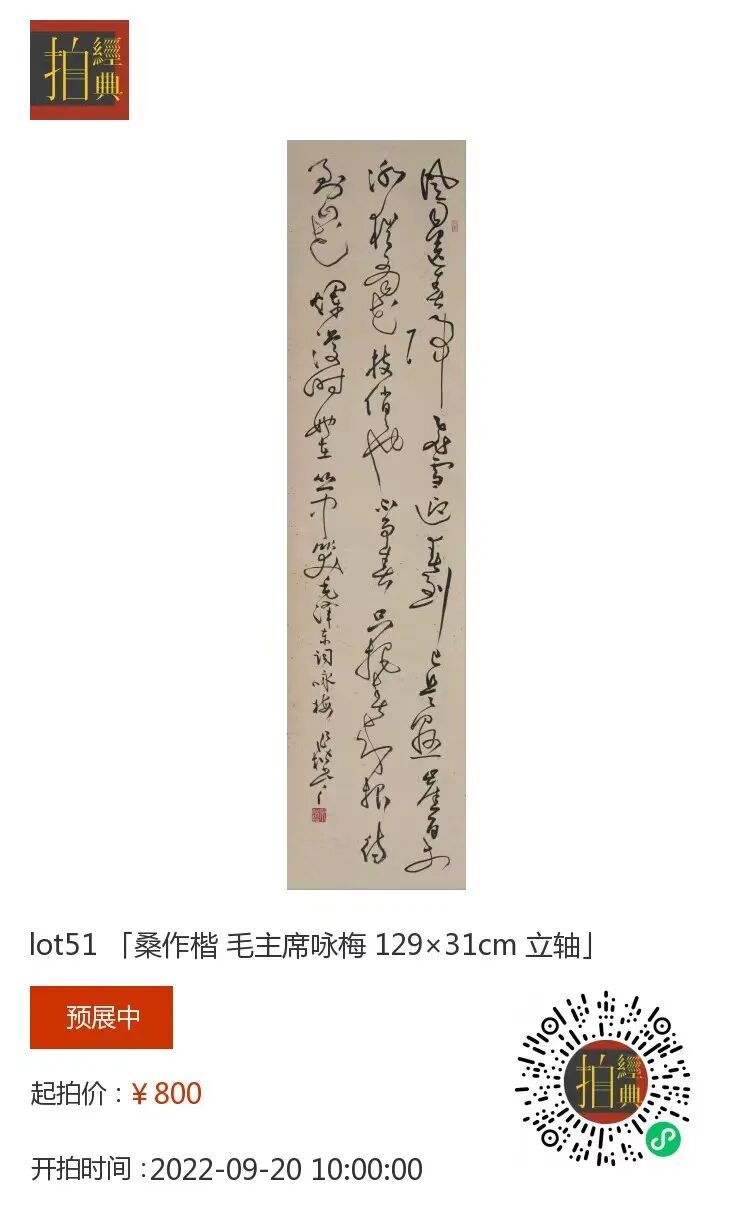 經典拍
風雨送春歸飛雪迎春到已是懸崖百丈
冰猶有花枝俏也不争春只把春来报待
到山花爛漫时她在丛中笑毛泽东词咏梅
lot51 「桑作楷 毛主席咏梅 129×31cm 立轴」
预展中
起拍价：¥800
开拍时间：2022-09-20 10:00:00
經典拍